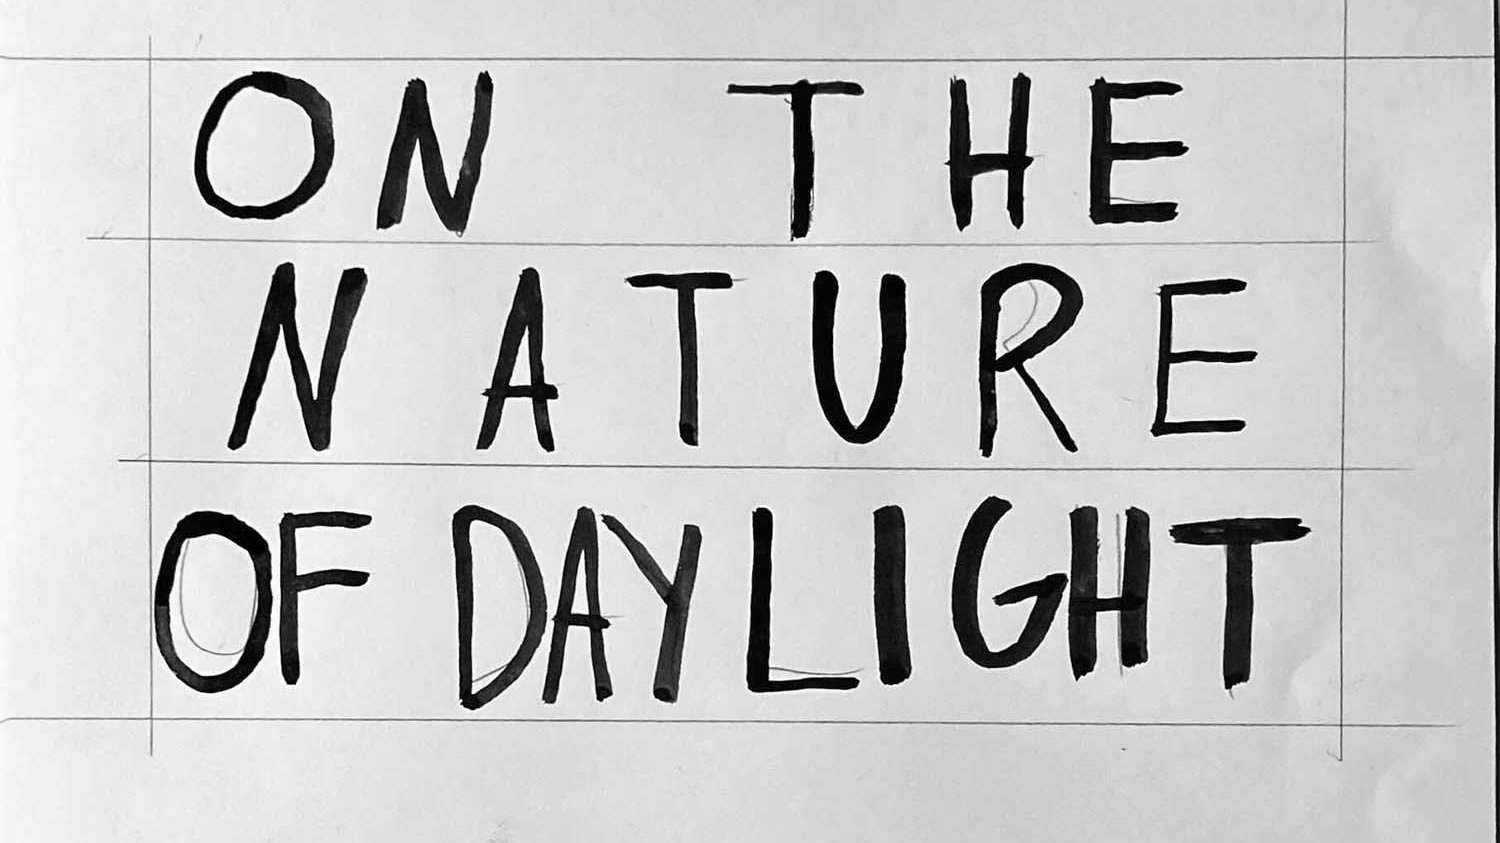 ON THE
NATURE
OF DAYLIGHT